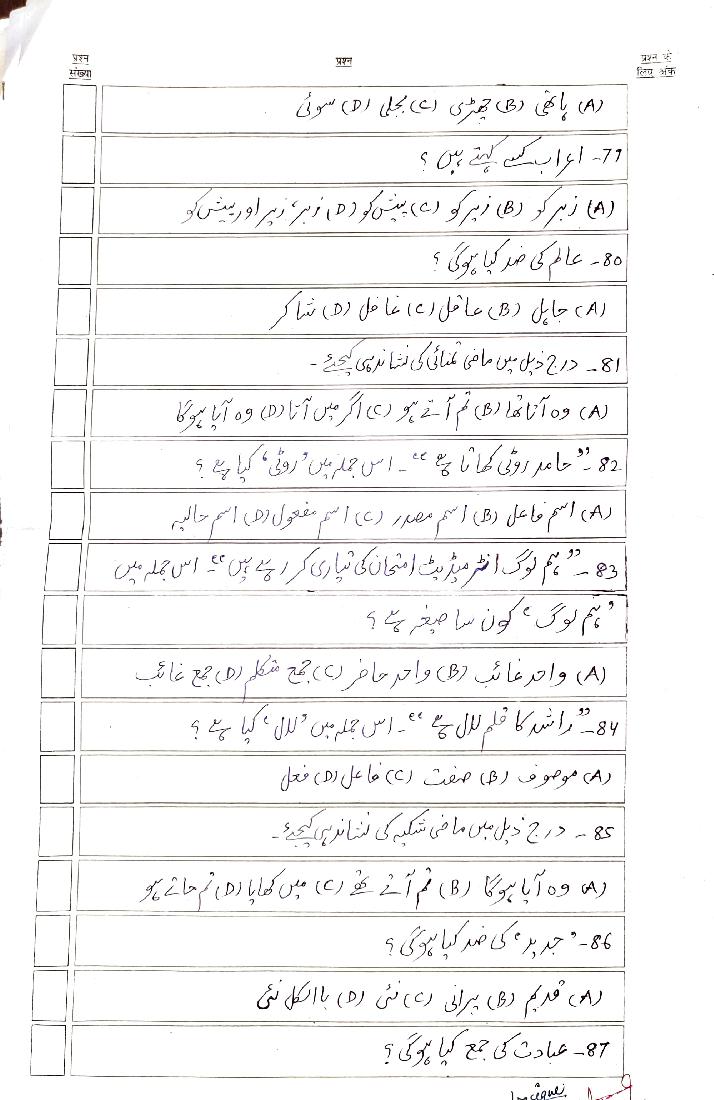 प्रश्न संख्या
प्रश्न
प्रश्न के लिए अंक
(A) ہاتھی (B) چھڑی (C) بجلی (D) سوئی
79- اعراب کسے کہتے ہیں ؟
(A) زبر کو (B) زیر کو (C) پیش کو (D) زبر، زیر اور پیش کو
80- عالم کی ضد کیا ہوگی ؟
(A) جاہل (B) عاقل (C) غافل (D) شاکر
81- درج ذیل میں ماضی تمنائی کی نشاندہی کیجئے۔
(A) وہ آتا تھا (B) تم آتے ہو (C) اگر میں آتا (D) وہ آیا ہوگا
82- ”حامد روٹی کھاتا ہے“۔ اس جملہ میں ’روٹی‘ کیا ہے ؟
(A) اسم فاعل (B) اسم مصدر (C) اسم مفعول (D) اسم حالیہ
83- ”ہم لوگ انٹرمیڈیٹ امتحان کی تیاری کر رہے ہیں“۔ اس جملہ میں
’ہم لوگ‘ کون سا صیغہ ہے ؟
(A) واحد غائب (B) واحد حاضر (C) جمع متکلم (D) جمع غائب
84- ”راشد کا قلم لال ہے“۔ اس جملہ میں ’لال‘ کیا ہے ؟
(A) موصوف (B) صفت (C) فاعل (D) فعل
85- درج ذیل میں ماضی شکیہ کی نشاندہی کیجئے۔
(A) وہ آیا ہوگا (B) تم آتے تھے (C) میں کھایا (D) تم جاتے ہو
86- ’جدید‘ کی ضد کیا ہوگی ؟
(A) قدیم (B) پرانی (C) نئی (D) باالکل نئی
87- عبادت کی جمع کیا ہوگی ؟